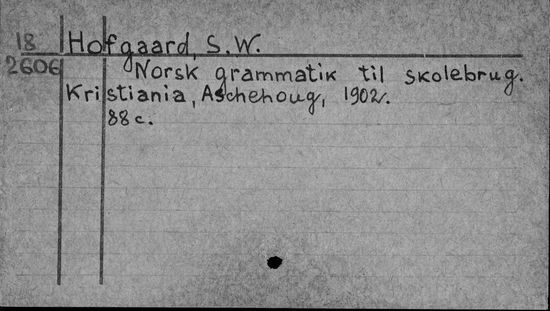 18 Hofgaard, S.W.
2606 Norsk grammatik til skolebrug.
Kristiania, Aschehoug, 1902.
88 c.